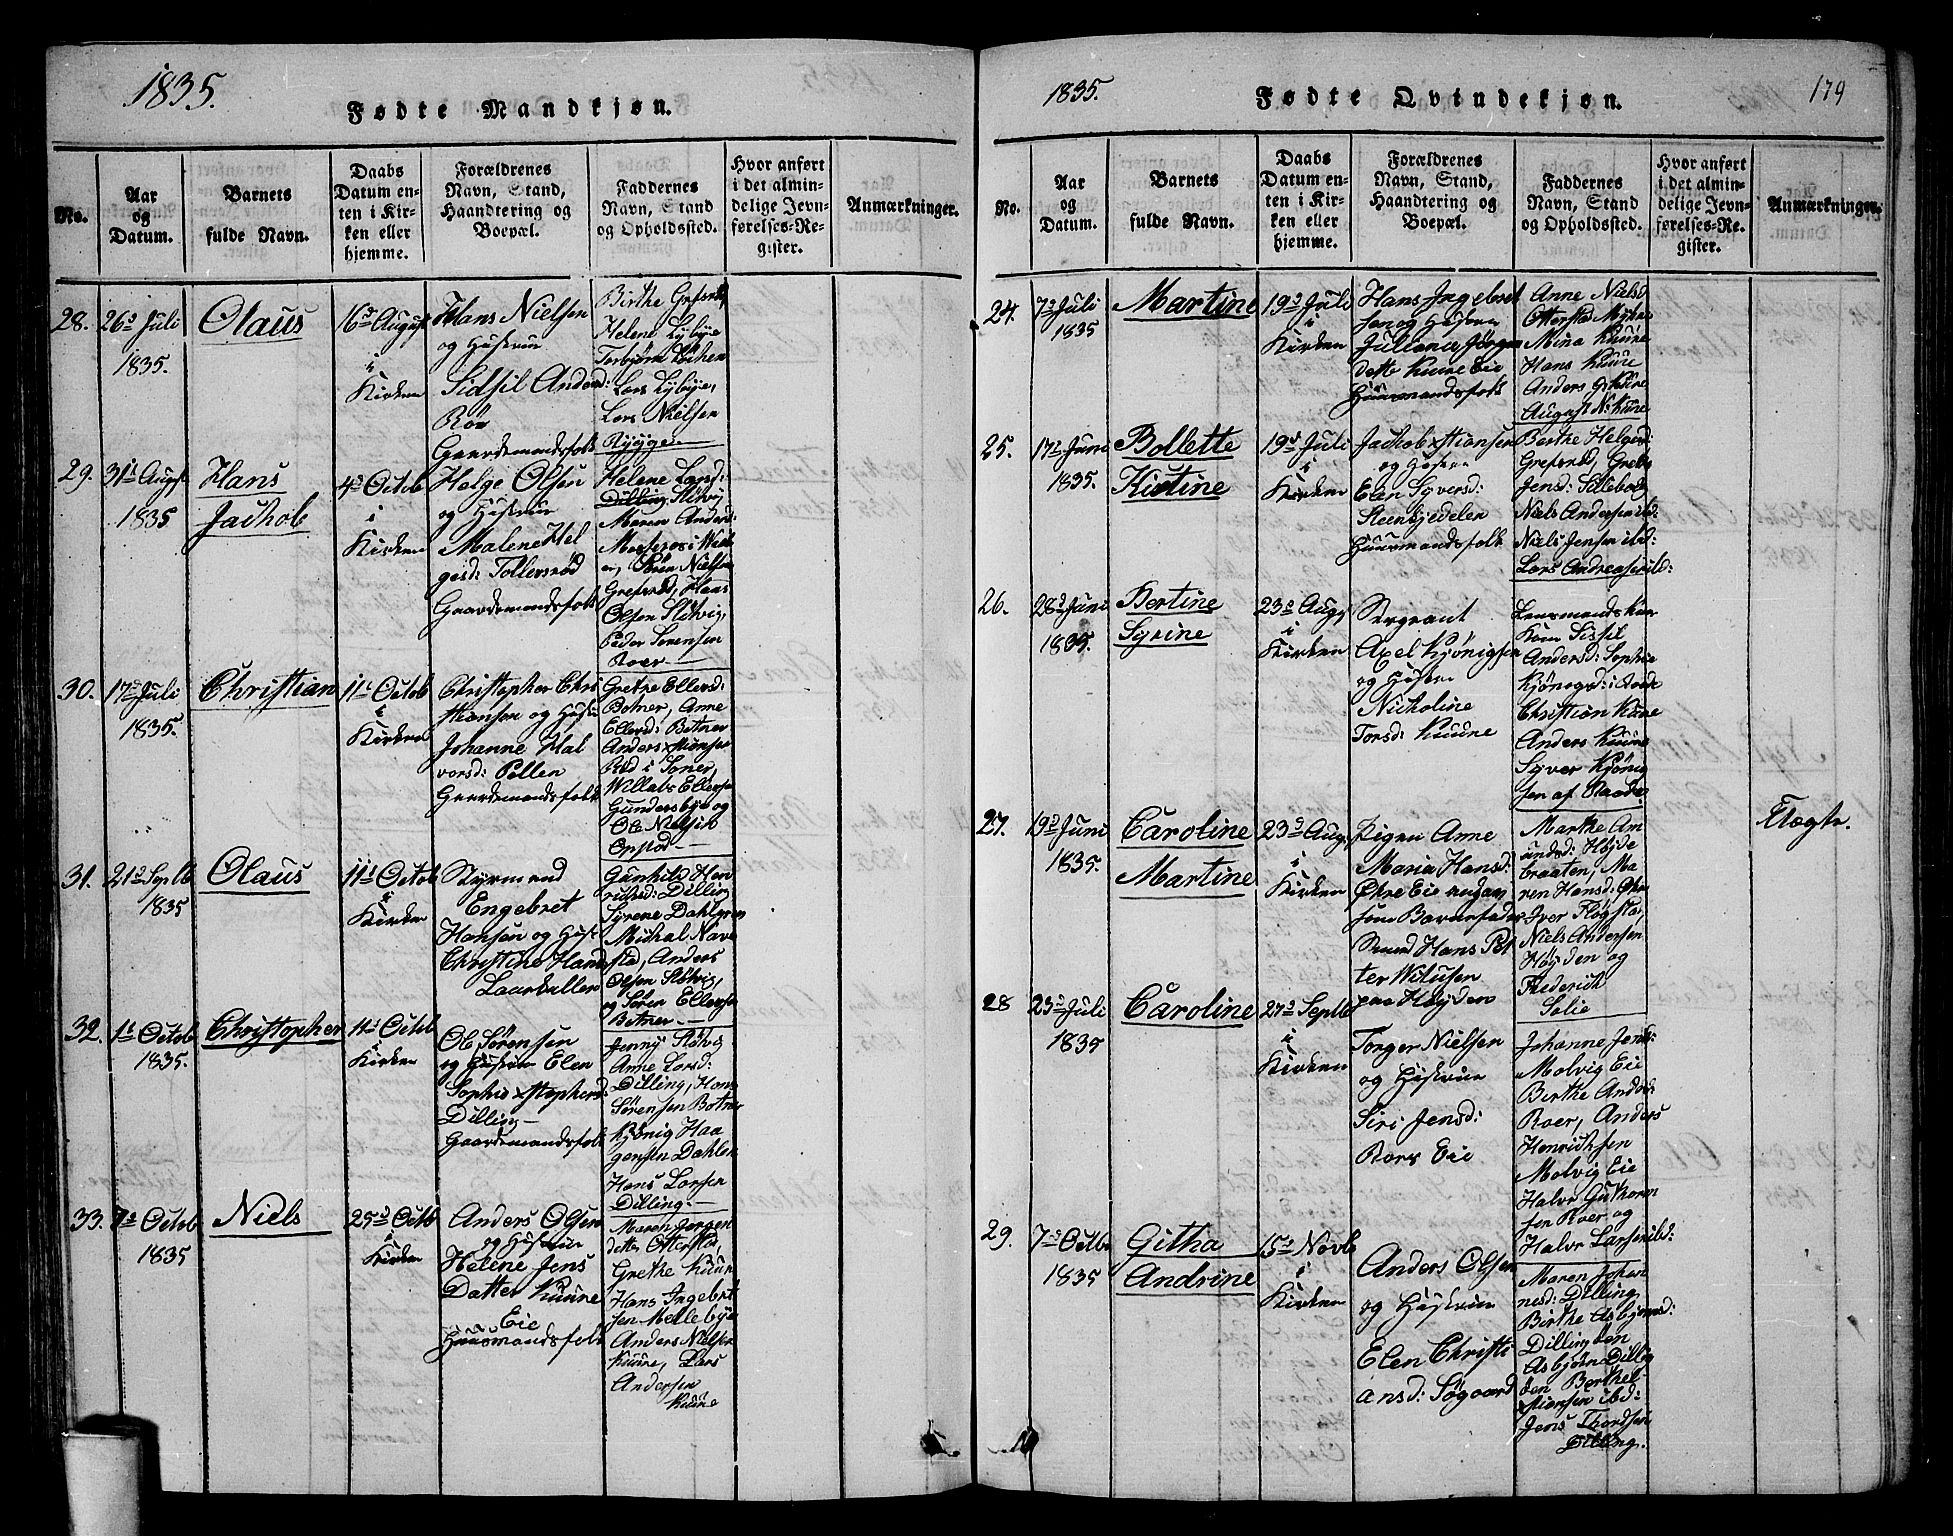 1835.
Fødte Mandkjøn.
No.
Aar
og
Datum.
Barnets
fulde Navn.
Daabs
Datum en-
ten i Kir-
ken eller
hjemme.
Forældrenes
Navn, Stand,
Haandtering og
Boepæl.
Faddernes
Navn, Stand
og Opholdssted.
Hvor anført
i det almin-
delige Jevn-
førelses-Re-
gister.
Anmærkninger.
28.
26d Juli
1835.
Olaus
16d August
i
Kirken
Hans Nielsen
og Hustrue
Sidsil Andersd:
Röv
Gaardemandsfolk
Birthe Grefsrød
Helene Lybye
Torbiörn Löken
Lars Lybye,
Lars Nielsen
Rygge.
29.
31t Augst
1835
Hans
Jachob
4d Octob
i
Kirken
Helge Olsen
og Hustrue
Malene Hel
gesd: Tollersrød
Gaardemandsfolk
Helene Larsd:
Dilling, Slövig
Maren Andersd:
Søren Nielsen
Grefsrød, Hans
Olsen Slövig,
Peder Sørensen
Roer
30.
17d Juli
1835.
Christian
11t Octob
i
Kirken
Christopher Chri
stiansen og Hustrue
Johanne Hal
vorsd: Pollen
Gaardemandsfolk
Grethe Ellersd:
Botner, Anne
Ellersd: Botner
Anders xstiansen
Rød i Soner,
Willads Ellersen
Gundersbye og
Ole Nielsen
31.
21d Septb
1835
Olaus
11t Octob
i
Kirken
Styrmand
Engebret
Hansen og Hust
Christine Hansd
Laarkullen
Gunhild Hen
richsd: Dilling
Syrene Dahlgren
Michal Nave
stad, Anders
Olsen Slövig,
og Sören Ellersen
Botner
32.
1t Octob
1835.
Christopher
11t Octob
i
Kirken
Ole Sørensen
og Hustrue Elen
Sophie xstophersd:
Dilling
Gaardemandsfolk
Jenny Slövig
Anne Larsd:
Dilling, Hans
Sørensen Botner
Kjönig Haa
gensen Dahlen
Hans Larsen
Dilling.
33.
7d Octob
1835
Niels
25d Octb
i
Kirken
Anders Olsen
og Hustrue
Helene Jens
Datter Kuure
Eie
Huusmandsfolk
Maren Jørgen
datter Otterstad,
Grethe Kuure
Hans Ingebret
sen Mellebye
Anders Nielsen
Kuure, Lars
Andersen
Kuure
1835.
Fødte Qvindekjøn.
179
No.
Aar
og
Datum.
Barnets
fulde Navn.
Daabs
Datum en-
ten i Kir-
ken eller
hjemme.
Forældrenes
Navn, Stand,
Haandtering og
Boepæl.
Faddernes
Navn, Stand
og Opholdssted.
Hvor anført
i det almin-
delige Jevn-
førelses-Re-
gister.
Anmærkninger.
24.
7d Juli
1835
Martine
19d Juli
i
Kirken
Hans Ingebret
sen og Hustrue
Juliane Jørgen
datt Kuure Eie
Huusmandsfolk
Anne Nielsd
Otterstad
Mina Kuure
Hans Kuure
Anders G. Kuure
August N. Kuure
25.
17d Juni
1835.
Bollette
Kirstine
19d Juli
i
Kirken
Jachob xstiansen
og Hustrue
Elen Syversd:
Steensjedelen
Huusmandsfolk
Berthe Helgesd:
Grefsrød, Grethe
Jensd: Sillebæk
Niels Andersen ibd:
Niels Jensen ibd:
Lars Andreasen ibd:
26.
28d Juni
1835.
Bertine
Syrine
23d Aug
i
Kirken
Sergeant
Axel Kjönigsen
og Hustrue
Nicholine
Torsd: Kuure
Sissil
Andersd: Sophie
Kjönigsd: i Raade
Christian Kuure
Anders Kuure
Syver Kjönig
sen af Raade
27.
19d Juni
1835.
Caroline
Martine
23d Aug
i
Kirken
Pigen Anne
Maria Hansd:
Økre Eie
som Barnefader
Hans Pet
ter
paa Höyden
Marthe Am
undsd: Höyde
braaten, Ma
ren Hansd: Økre
Iver Flögsta,
Niels Andersen
Höyden og
Frederich
Solie
Uægte.
28
23d Juli
1835
Caroline
27d Septb
i
Kirken
Torger Nielsen
og Hustrue
Siri Jensd:
Roers Eie
Johanne Jensd:
Molvig Eie
Berthe Andsd:
Roer, Anders
Henrichsen
Molvig Eie
Halvor Guthorm
sen Roer og
Halvor Larsen ibd:
29.
7d Octb
1835
Githa
Andrine
15d Novb
i
Kirken
Anders Olsen
og Hustrue
Elen Christi
ansd: Søgaard
Maren Johan
nesd: Dilling
Birthe Asbjørnsd:
Dillingöen
Asbjørn Dilling
öen Berthel
xstiansen ibd:
Jens Thordsen
Dilling.